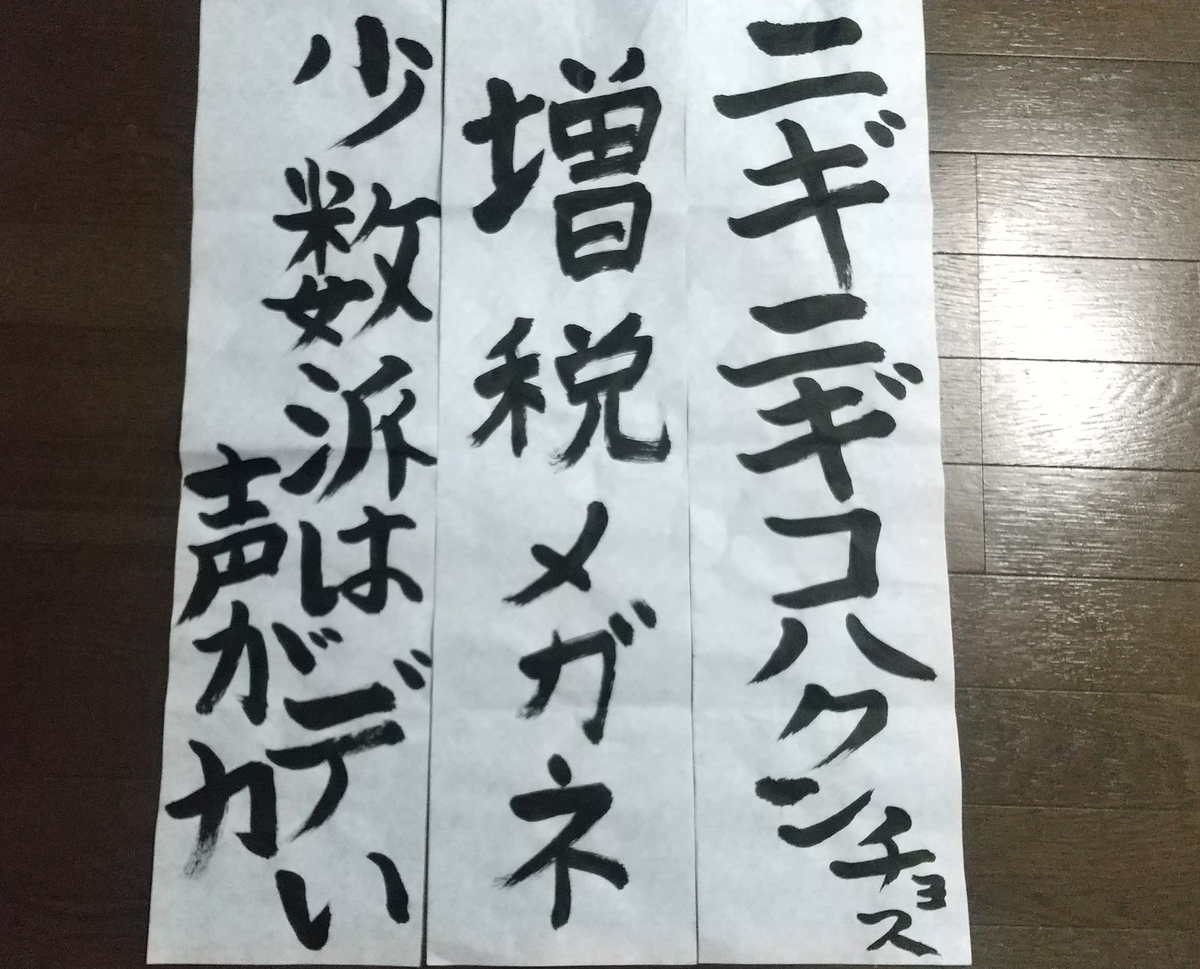 ニギニギコハクンチョス
増税メガネ
少数派はデい
声がカ